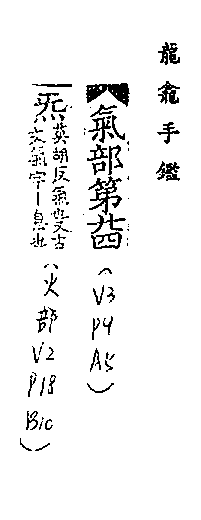 龍龕手鑑
氣部第廿四
(V3 P4 A5)
炁英胡反氣也又古
文氣字丨息也
(火部 V2 P18 B10)